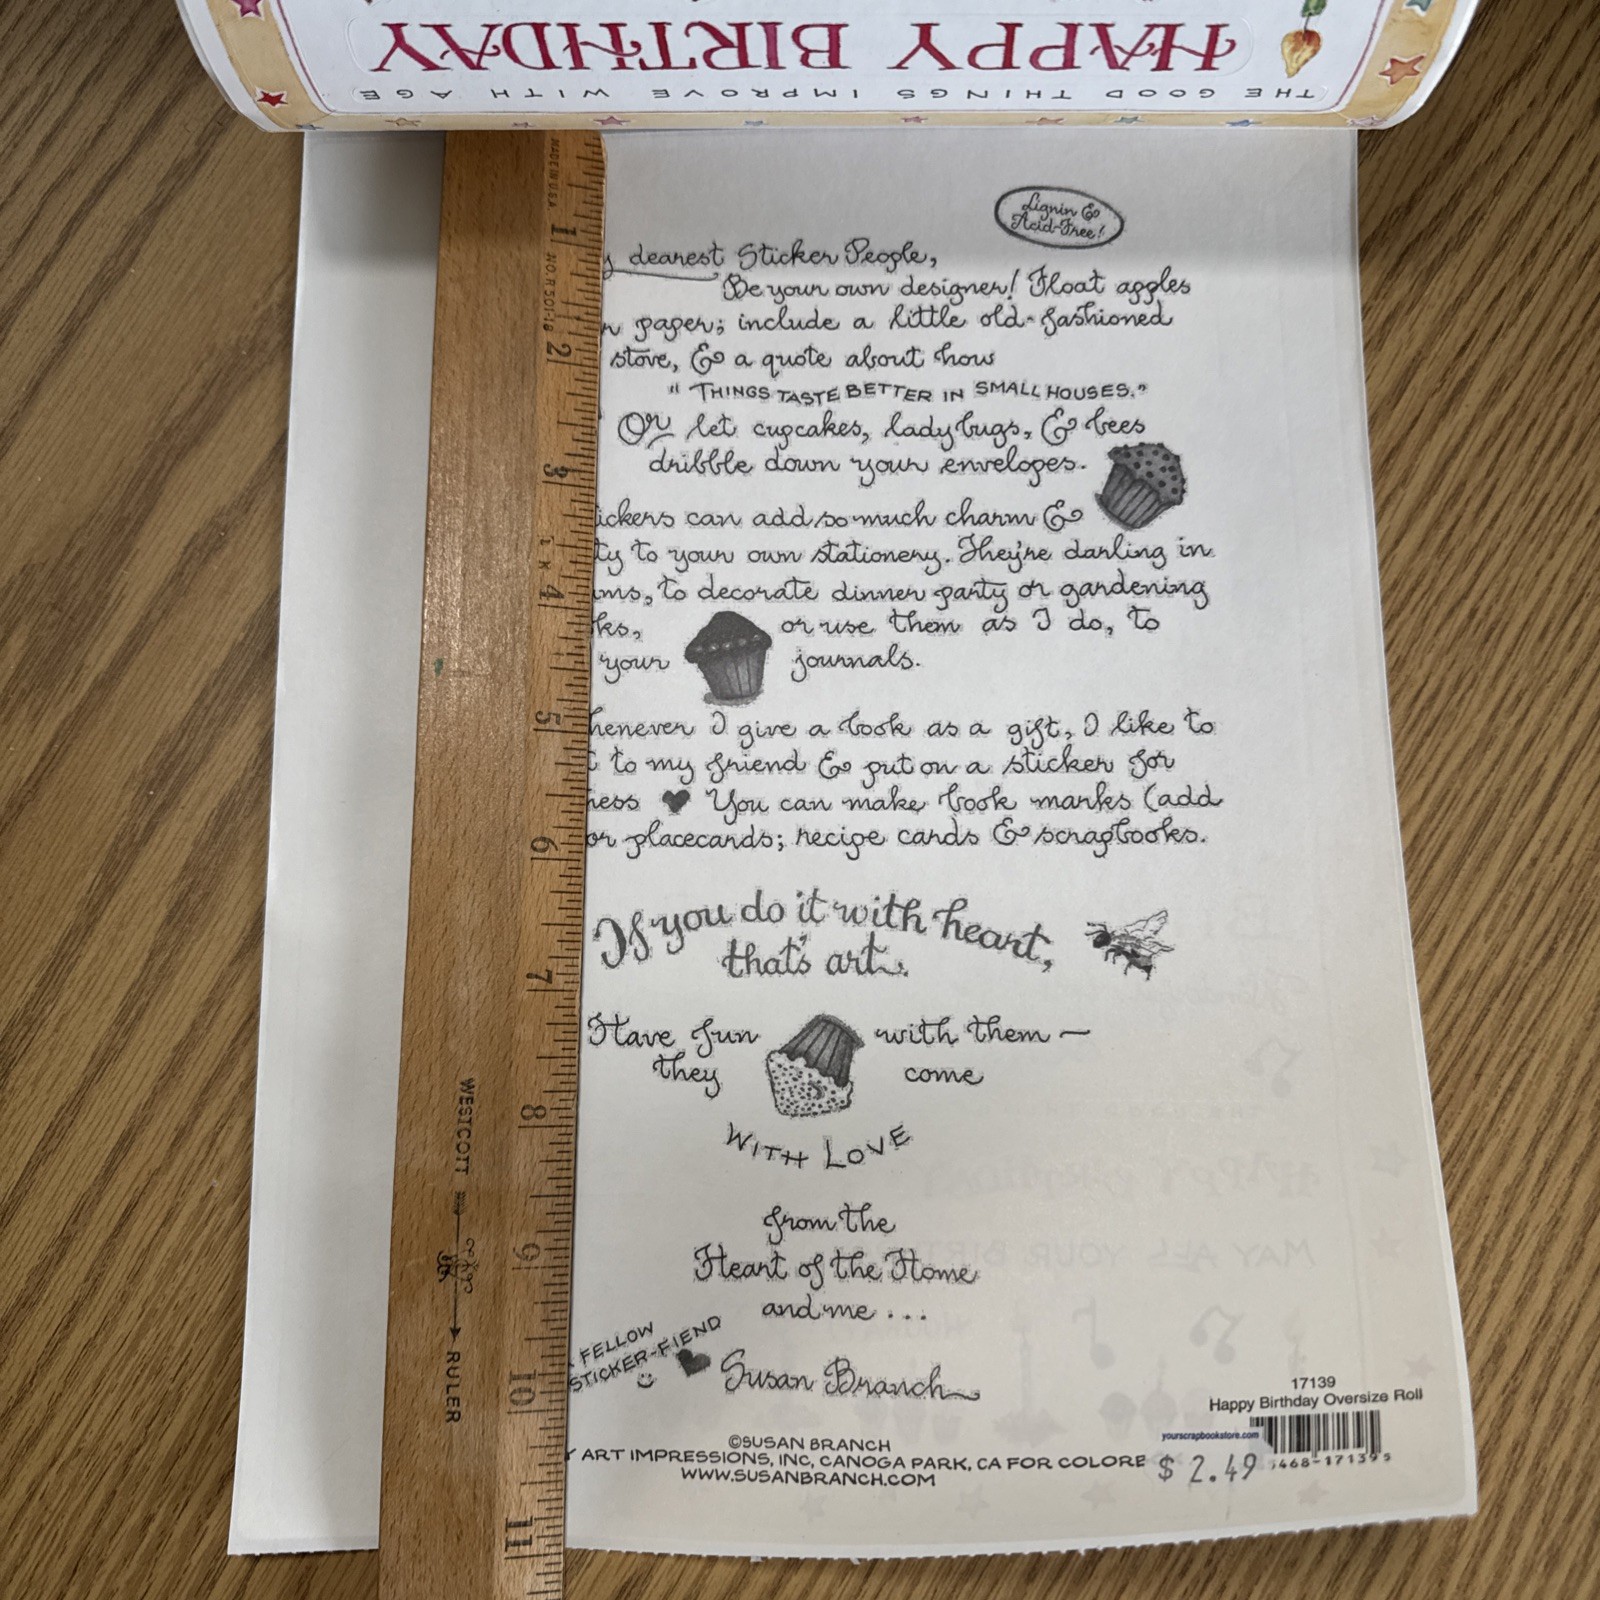 HAPPY BIRTHDAY
THE GOOD THINGS IMPROVE WITH AGE
Lignin &
Acid-Free!
dearest Sticker People,
Be your own designer! Float apples
paper; include a little old-fashioned
stove, & a quote about how
"THINGS TASTE BETTER IN SMALL HOUSES."
Or let cupcakes, ladybugs, & bees
dribble down your envelopes.
ickers can add so much charm &
ty to your own stationery. They're darling in
ms, to decorate dinner party or gardening
ks, or use them as I do, to
your journals.
henever I give a book as a gift, I like to
to my friend & put on a sticker for
ness ♥ You can make book marks (add
or placecards; recipe cards & scrapbooks.
If you do it with heart,
that's art.
Have fun with them —
they come
WITH LOVE
from the
Heart of the Home
and me ...
FELLOW
STICKER-FIEND
Susan Branch
©SUSAN BRANCH
Y ART IMPRESSIONS, INC, CANOGA PARK, CA FOR COLORE
WWW.SUSANBRANCH.COM
17139
Happy Birthday Oversize Roll
yourscrapbookstore.com
$ 2.49
5468-17139 5
MADE IN U.S.A.
1 2 3 4 5 6 7 8 9 10 11
WESTCOTT
RULER
MAY ALL YOUR BIRT